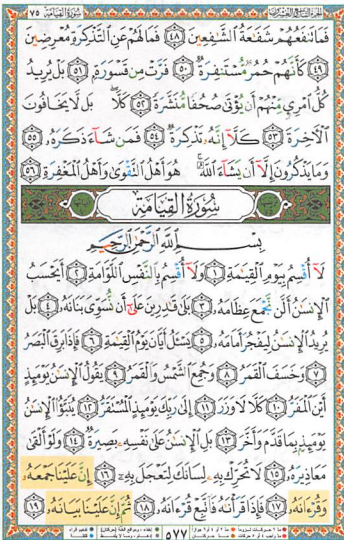 سورة القيامة ٧٥ الجزء التاسع والعشرون
فَمَا تَنفَعُهُمْ شَفَٰعَةُ ٱلشَّٰفِعِينَ ٤٨ فَمَا لَهُمْ عَنِ ٱلتَّذْكِرَةِ مُعْرِضِينَ
٤٩ كَأَنَّهُمْ حُمُرٌ مُّسْتَنفِرَةٌ ٥٠ فَرَّتْ مِن قَسْوَرَةٍۭ ٥١ بَلْ يُرِيدُ
كُلُّ ٱمْرِئٍ مِّنْهُمْ أَن يُؤْتَىٰ صُحُفًا مُّنَشَّرَةً ٥٢ كَلَّا ۖ بَل لَّا يَخَافُونَ
ٱلْءَاخِرَةَ ٥٣ كَلَّآ إِنَّهُۥ تَذْكِرَةٌ ٥٤ فَمَن شَآءَ ذَكَرَهُۥ ٥٥
وَمَا يَذْكُرُونَ إِلَّآ أَن يَشَآءَ ٱللَّهُ ۚ هُوَ أَهْلُ ٱلتَّقْوَىٰ وَأَهْلُ ٱلْمَغْفِرَةِ ٥٦
سُورَةُ القِيَامَةِ
بِسْمِ ٱللَّهِ ٱلرَّحْمَٰنِ ٱلرَّحِيمِ
لَآ أُقْسِمُ بِيَوْمِ ٱلْقِيَٰمَةِ ١ وَلَآ أُقْسِمُ بِٱلنَّفْسِ ٱللَّوَّامَةِ ٢ أَيَحْسَبُ
ٱلْإِنسَٰنُ أَلَّن نَّجْمَعَ عِظَامَهُۥ ٣ بَلَىٰ قَٰدِرِينَ عَلَىٰٓ أَن نُّسَوِّىَ بَنَانَهُۥ ٤ بَلْ
يُرِيدُ ٱلْإِنسَٰنُ لِيَفْجُرَ أَمَامَهُۥ ٥ يَسْـَٔلُ أَيَّانَ يَوْمُ ٱلْقِيَٰمَةِ ٦ فَإِذَا بَرِقَ ٱلْبَصَرُ
٧ وَخَسَفَ ٱلْقَمَرُ ٨ وَجُمِعَ ٱلشَّمْسُ وَٱلْقَمَرُ ٩ يَقُولُ ٱلْإِنسَٰنُ يَوْمَئِذٍ
أَيْنَ ٱلْمَفَرُّ ١٠ كَلَّا لَا وَزَرَ ١١ إِلَىٰ رَبِّكَ يَوْمَئِذٍ ٱلْمُسْتَقَرُّ ١٢ يُنَبَّؤُا۟ ٱلْإِنسَٰنُ
يَوْمَئِذٍۭ بِمَا قَدَّمَ وَأَخَّرَ ١٣ بَلِ ٱلْإِنسَٰنُ عَلَىٰ نَفْسِهِۦ بَصِيرَةٌ ١٤ وَلَوْ أَلْقَىٰ
مَعَاذِيرَهُۥ ١٥ لَا تُحَرِّكْ بِهِۦ لِسَانَكَ لِتَعْجَلَ بِهِۦٓ ١٦ إِنَّ عَلَيْنَا جَمْعَهُۥ
وَقُرْءَانَهُۥ ١٧ فَإِذَا قَرَأْنَٰهُ فَٱتَّبِعْ قُرْءَانَهُۥ ١٨ ثُمَّ إِنَّ عَلَيْنَا بَيَانَهُۥ ١٩
٥٧٧